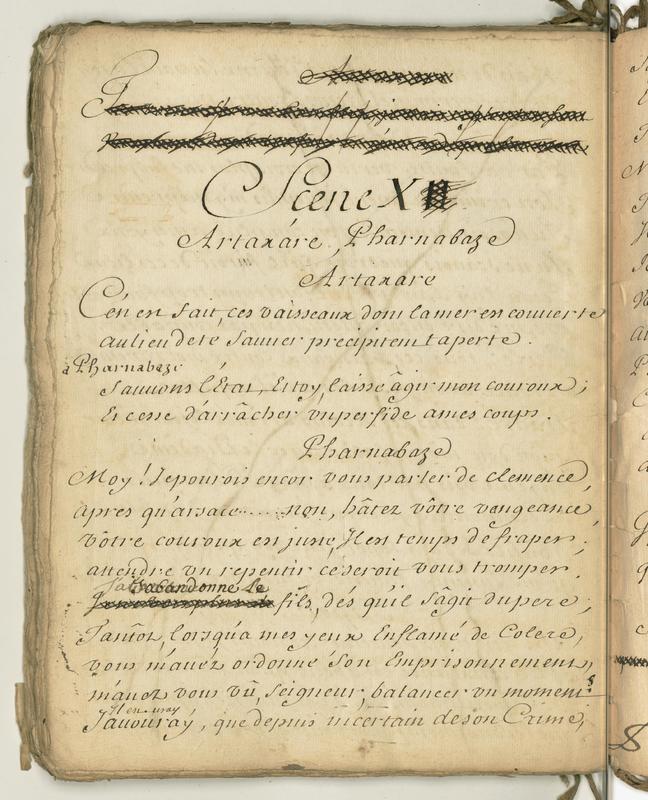 Scene X
Artaxáre, Pharnabaze
Artaxare
C'en est fait, ces vaisseaux dont la mer est couverte
au lieu de te sauver precipitent ta perte.
à Pharnabaze
Sauvons l'État, Et toy, laisse âgir mon couroux;
Et cesse d'arrâcher un perfide a mes coups.
Pharnabaze
Moy! Je pourois encor vous parler de clemence,
apres qu'arsace ..... non, hâtez vôtre vengeance,
vôtre couroux est juste, Il est temps de fraper;
attendre un repentir ce seroit vous tromper.
J'abandonne le
fils, dés qu'il s'âgit du pere;
Tantôt, lorsqu'a mes yeux Enflamé de Colere,
vous m'avéz ordonné son Emprisonnement,
m'avez vous vû, seigneur, balancer un moment?
Il est vray
J'avouray, que depuis incertain de son Crime,